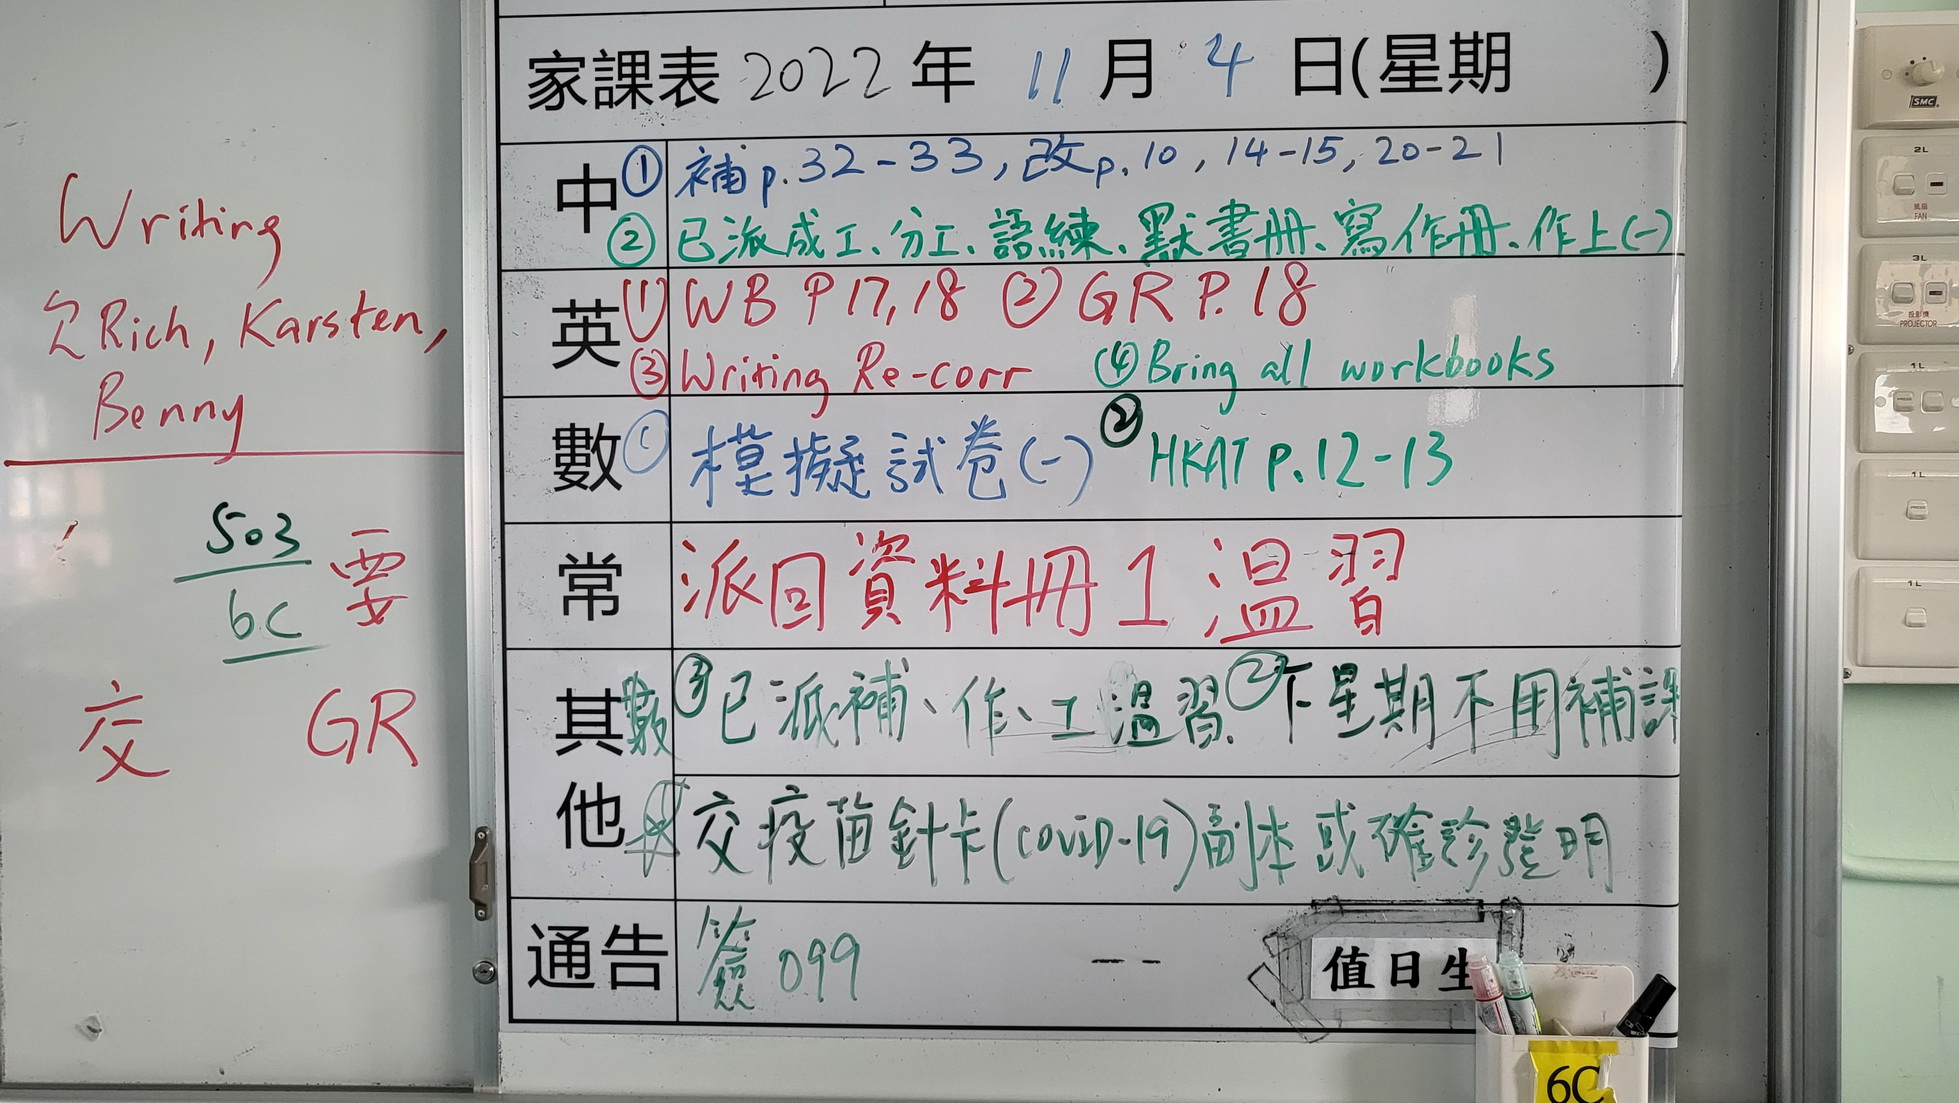 Writing
欠Rich, Karsten,
Benny
503
6C
要
交 GR
家課表 2022 年 11 月 4 日(星期 )
中 ① 補p.32-33, 改p.10, 14-15, 20-21
② 已派成工、分工、語練、默書冊、寫作冊、作上(一)
英 ① WB P17,18 ② GR P.18
③ Writing Re-corr ④ Bring all workbooks
數 ① 模擬試卷(一) ② HKAT p.12-13
常 派回資料冊1溫習
其他
數 ③ 已派補、作、工溫習. ② 下星期不用補課
交疫苗針卡(COVID-19)副本或確診證明
通告 簽 099 --
值日生
6C
SMC
2L
風扇
FAN
3L
投影機
PROJECTOR
1L
1L
1L